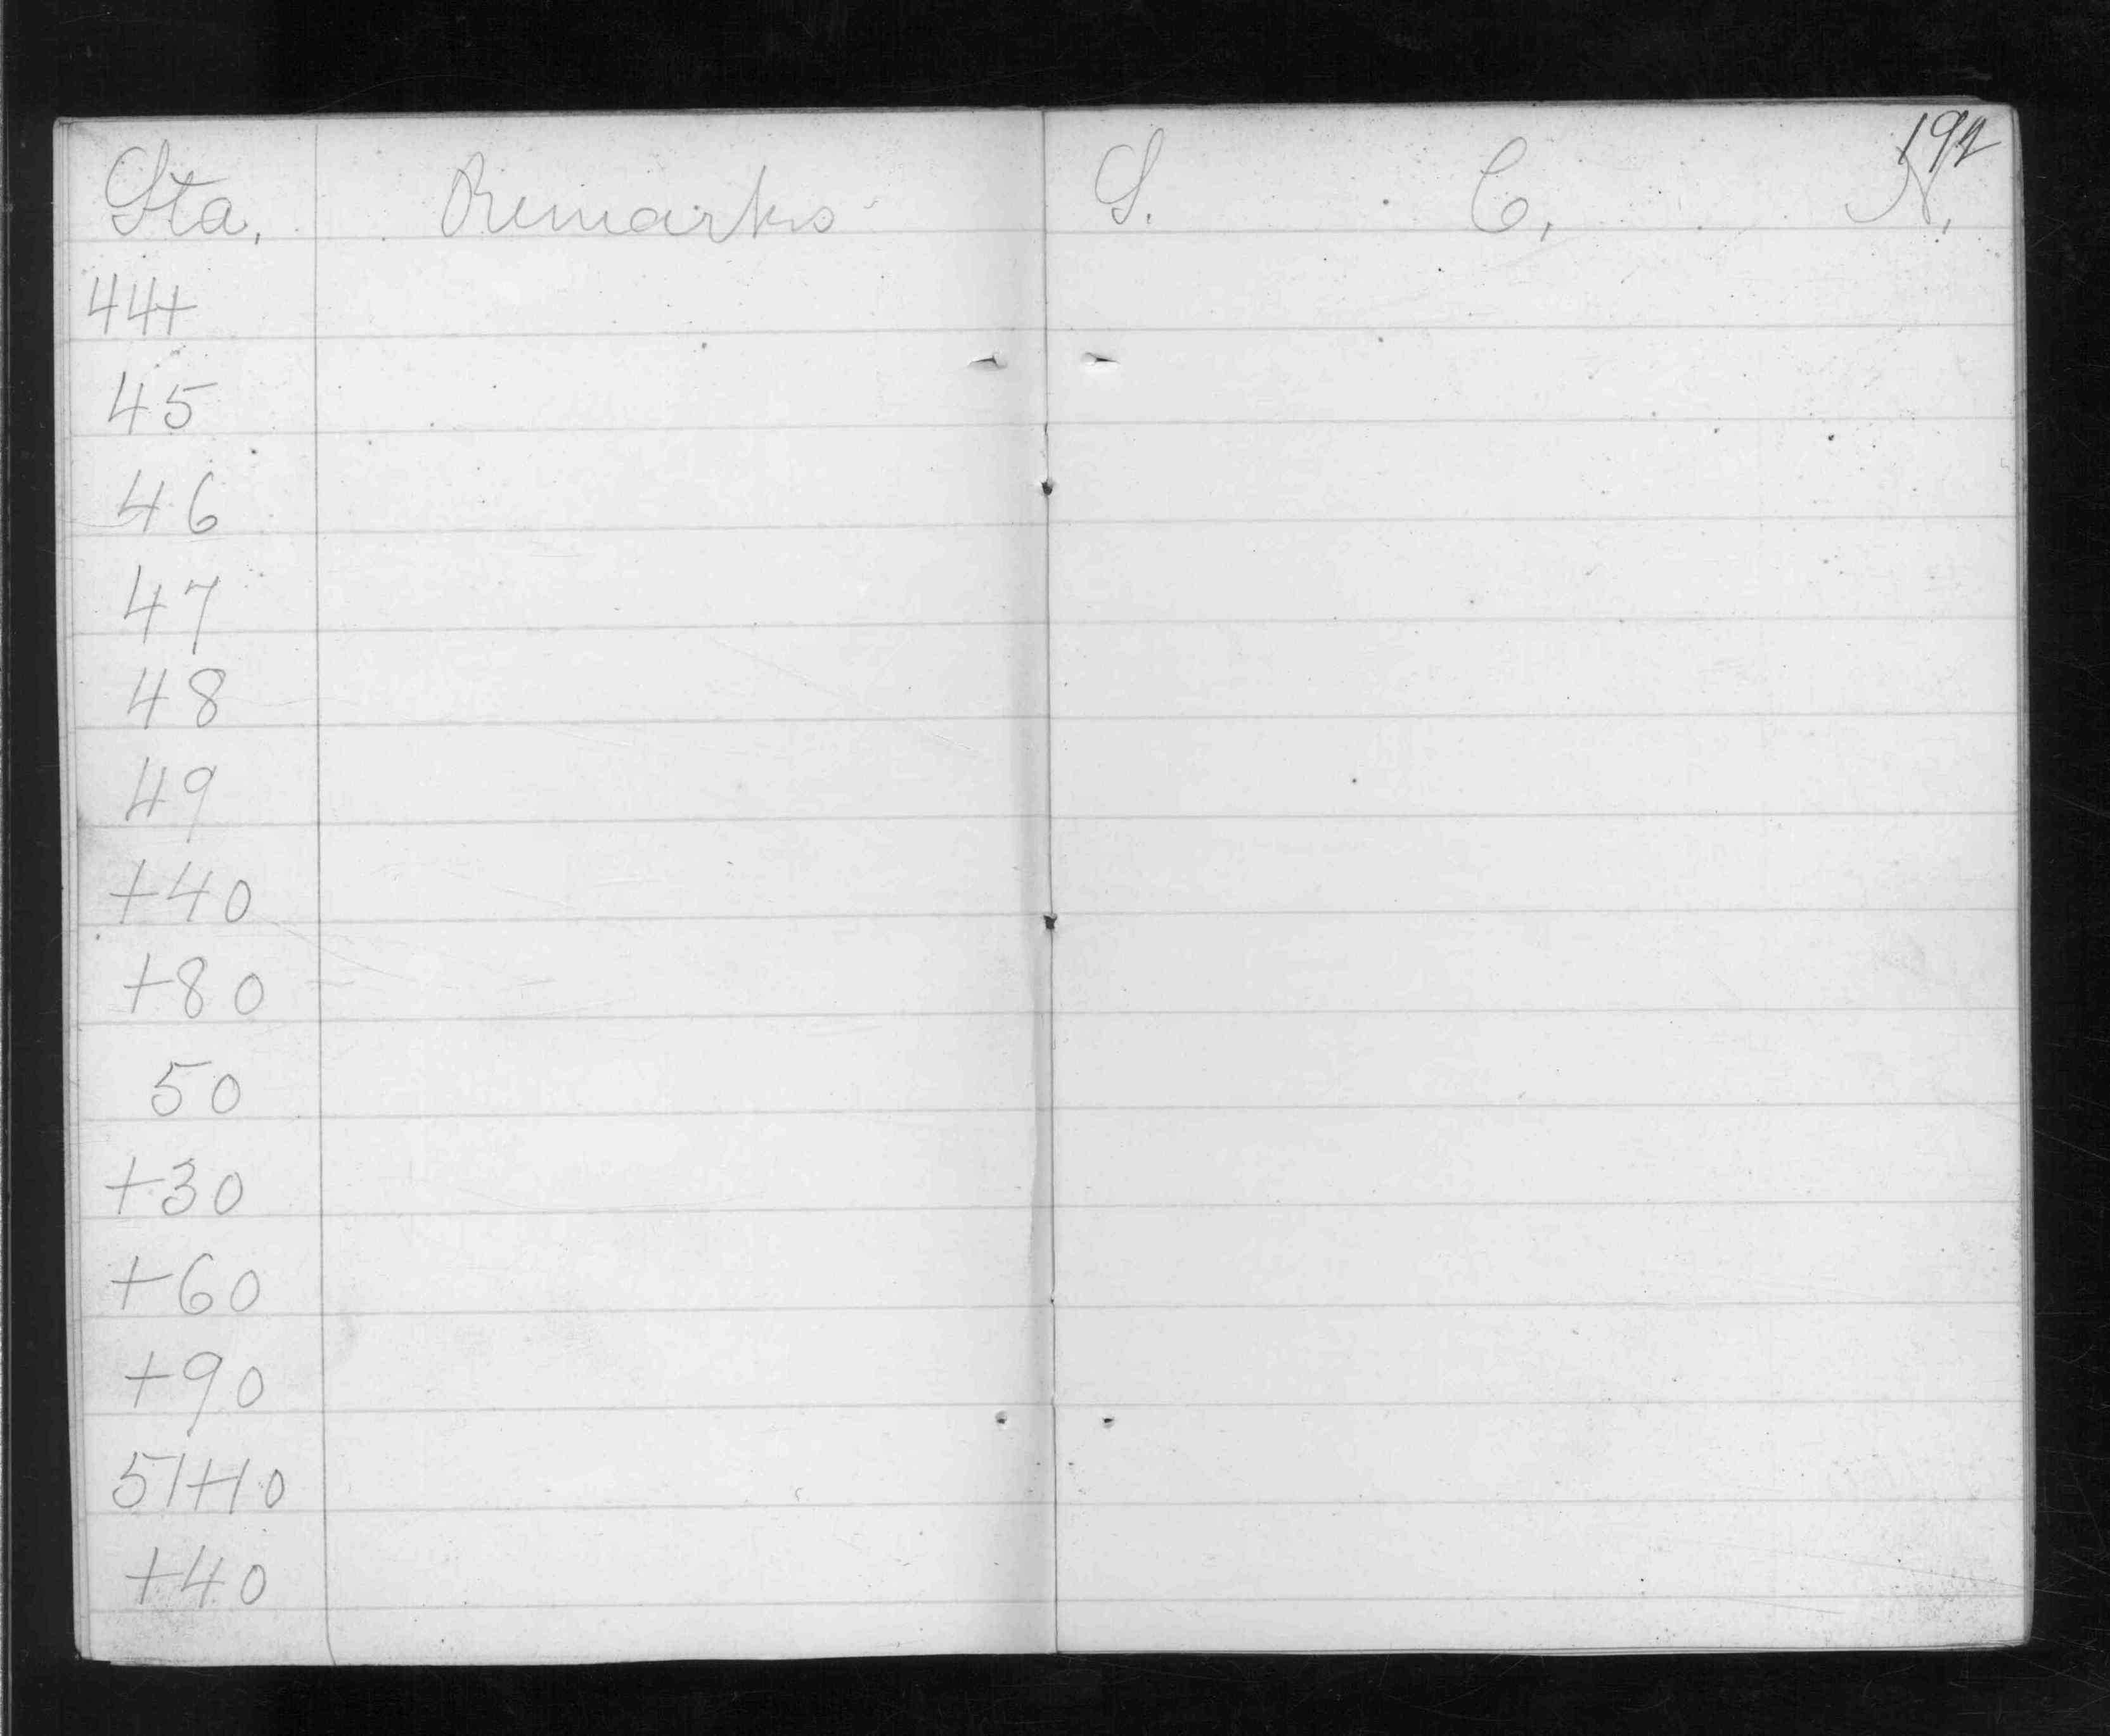 Sta. Remarks S. C. N.
44+
45
46
47
48
49
+40
+80
50
+30
+60
+90
51+10
+40